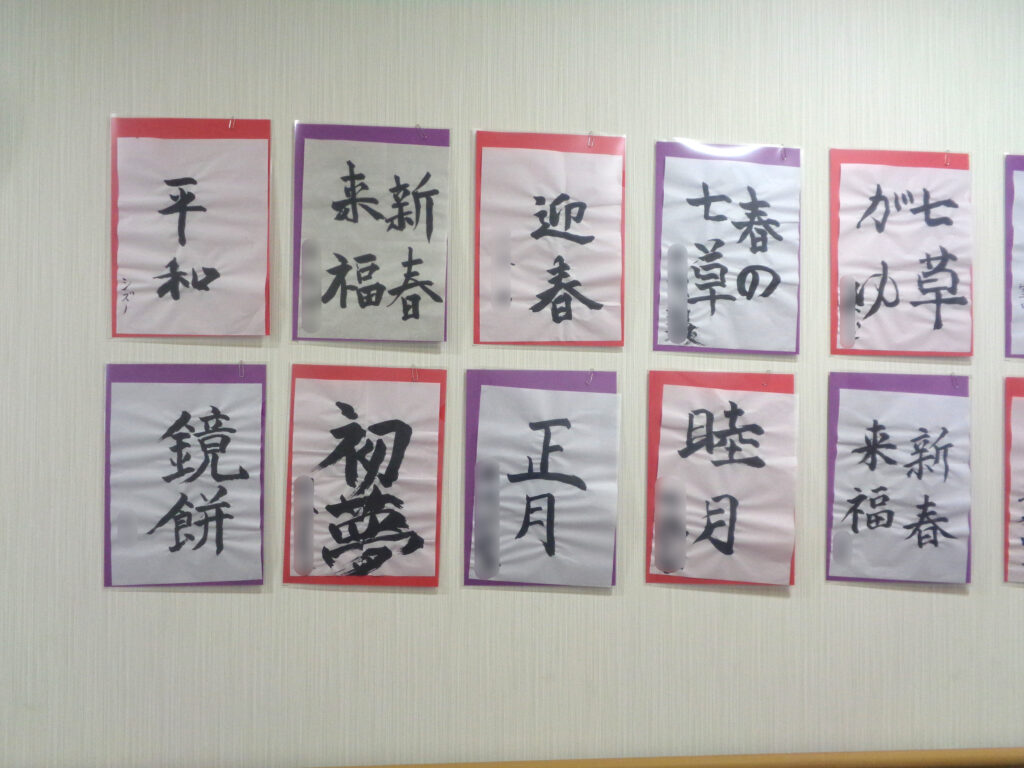 平和
新春
来福
迎春
春の
七草
七草
がゆ
鏡餅
初夢
正月
睦月
新春
来福